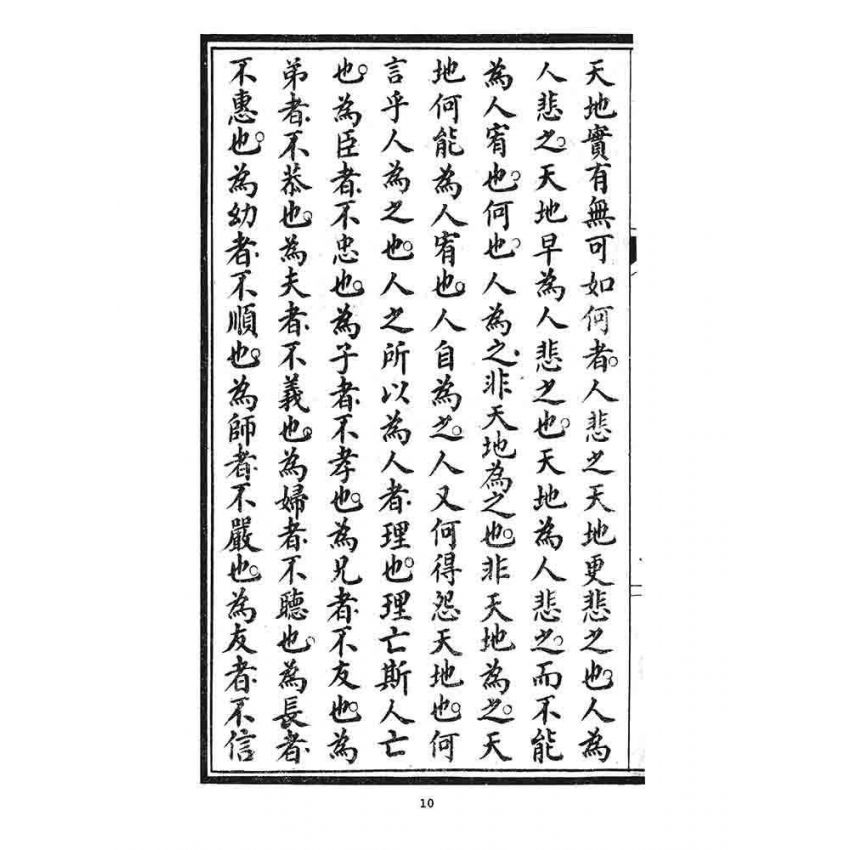 天地實有無可如何者。人悲之天地更悲之也。人為
人悲之。天地早為人悲之也。天地為人悲之。而不能
為人宥也。何也。人為之。非天地為之也。非天地為之。天
地何能為人宥也。人自為之。人又何得怨天地也。何
言乎人為之也。人之所以為人者。理也。理亡斯人亡
也。為臣者。不忠也。為子者。不孝也。為兄者。不友也。為
弟者。不恭也。為夫者。不義也。為婦者。不聽也。為長者。
不惠也。為幼者。不順也。為師者。不嚴也。為友者。不信
10